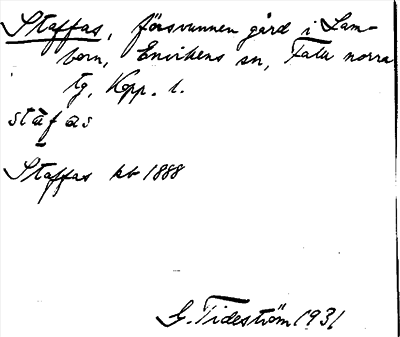 Staffas, försvunnen gård i Lam-
born, Envikens sn, Falu norra
tg, Kopp. l.
stafas
Staffas kb 1888
G. Tideström 1931